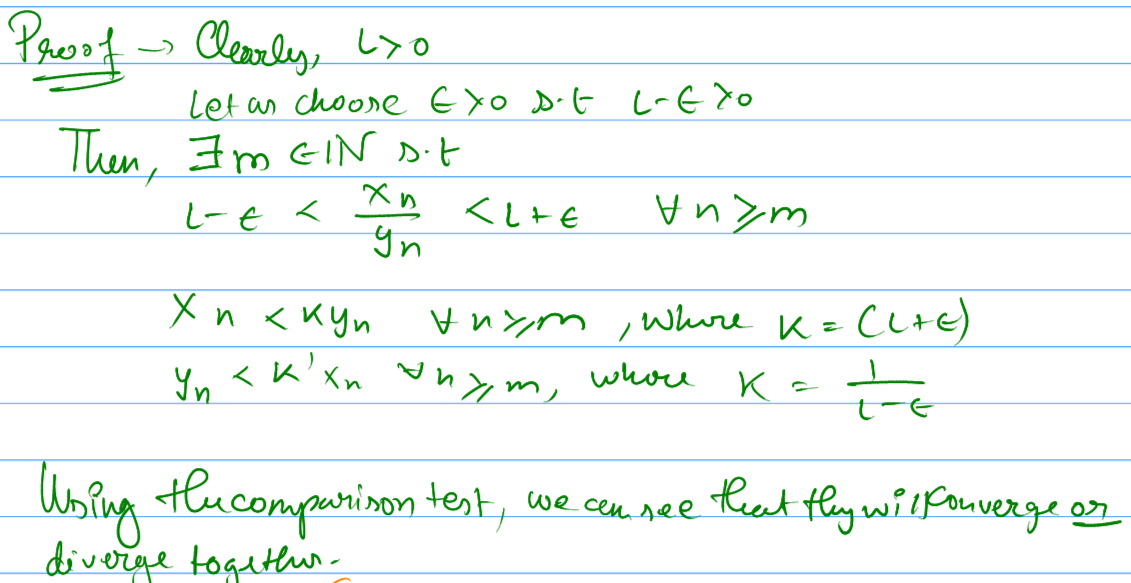 Proof → Clearly, L>0
Let us choose ϵ>0 s.t L-ϵ>0
Then, ∃m ∈ℕ s.t
L-ϵ < xn/yn < L+ϵ ∀n⩾m
xn < Kyn ∀n⩾m, where K = (L+ϵ)
yn < K'xn ∀n⩾m, where K = 1/(L-ϵ)
Using the comparison test, we can see that they will converge or
diverge together.